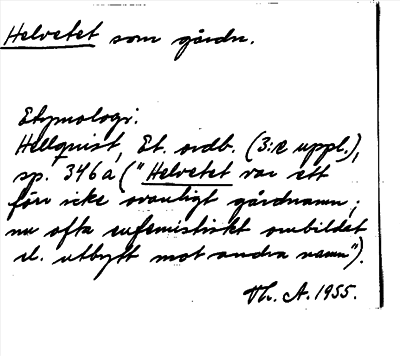 Helvetet som gårdn.
Etymologi:
Hellquist, Et. ordb. (3:e uppl.),
sp. 346a ("Helvetet var ett
förr icke ovanligt gårdnamn;
nu ofta eufemistiskt ombildet
el. utbytt mot andra namn").
Th. A. 1955.